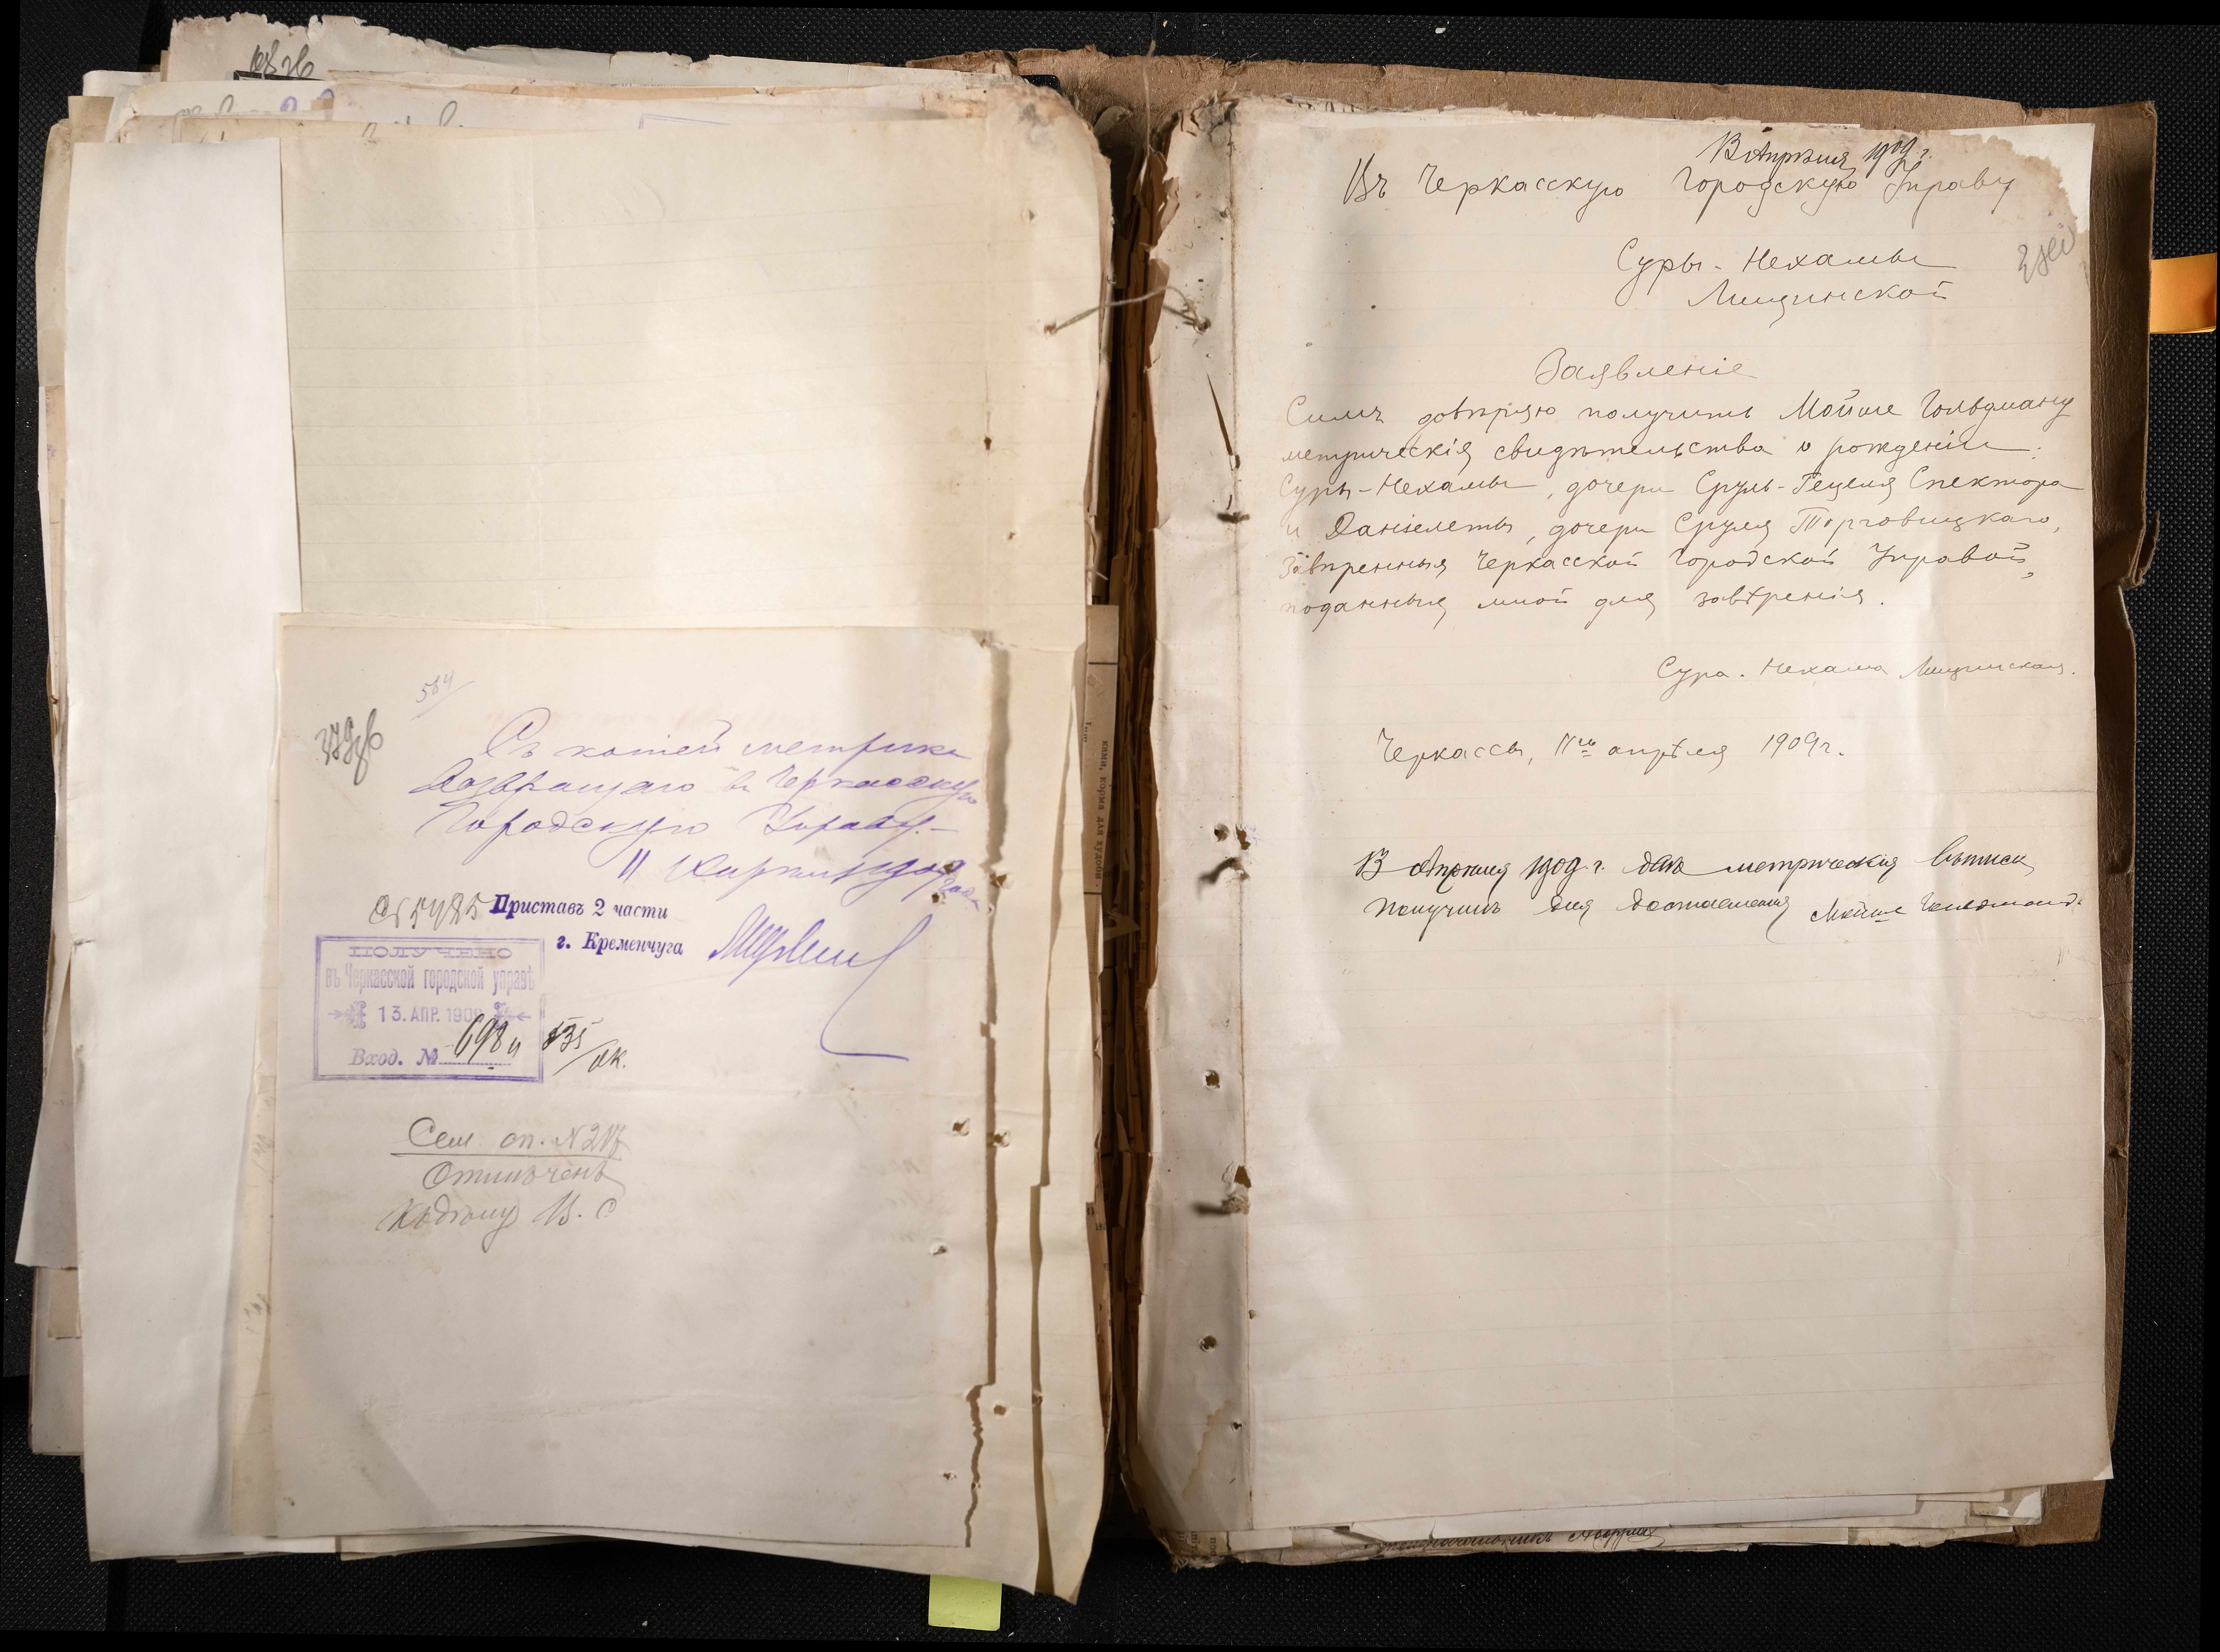 564
Съ копіей метрики
возвращаю въ Черкасскую
Городскую Управу.
11
№ 5485
Приставъ 2 части
г. Кременчуга
ПОЛУЧЕНО
въ Черкасской городской управѣ
13. АПР. 1909
Вход. № 698
Сем. оп. №
Отмѣченъ
13 Апрѣля 1909 г.
Въ Черкасскую Городскую Управу
Суры-Нехамы
Мищинской
Заявленіе
Симъ довѣряю получить Мойше Гольдману
метрическія свидѣтельства о рожденіи:
Суры-Нехамы, дочери Сруль-Гецеля Спектора
и Даніелеты, дочери Сруля Торговицкаго,
завѣренныя Черкасской Городской Управой,
поданныя мной для завѣренія.
Сура-Нехама Мищинская.
Черкассы, 11го апрѣля 1909 г.
13 Апрѣля 1909 г. два метрическія выписи
получилъ для доставленія Мойше Гольдманъ